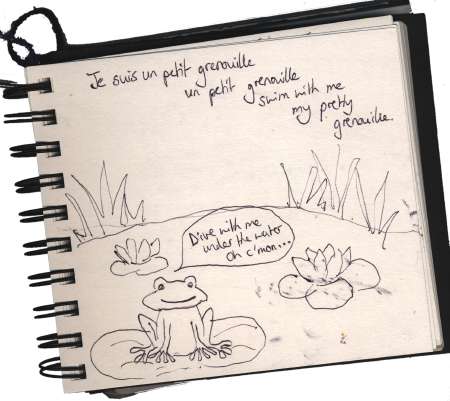 Je suis un petit grenouille
un petit grenouille
swim with me
my pretty
grenouille.
Dive with me
under the water
oh c'mon...